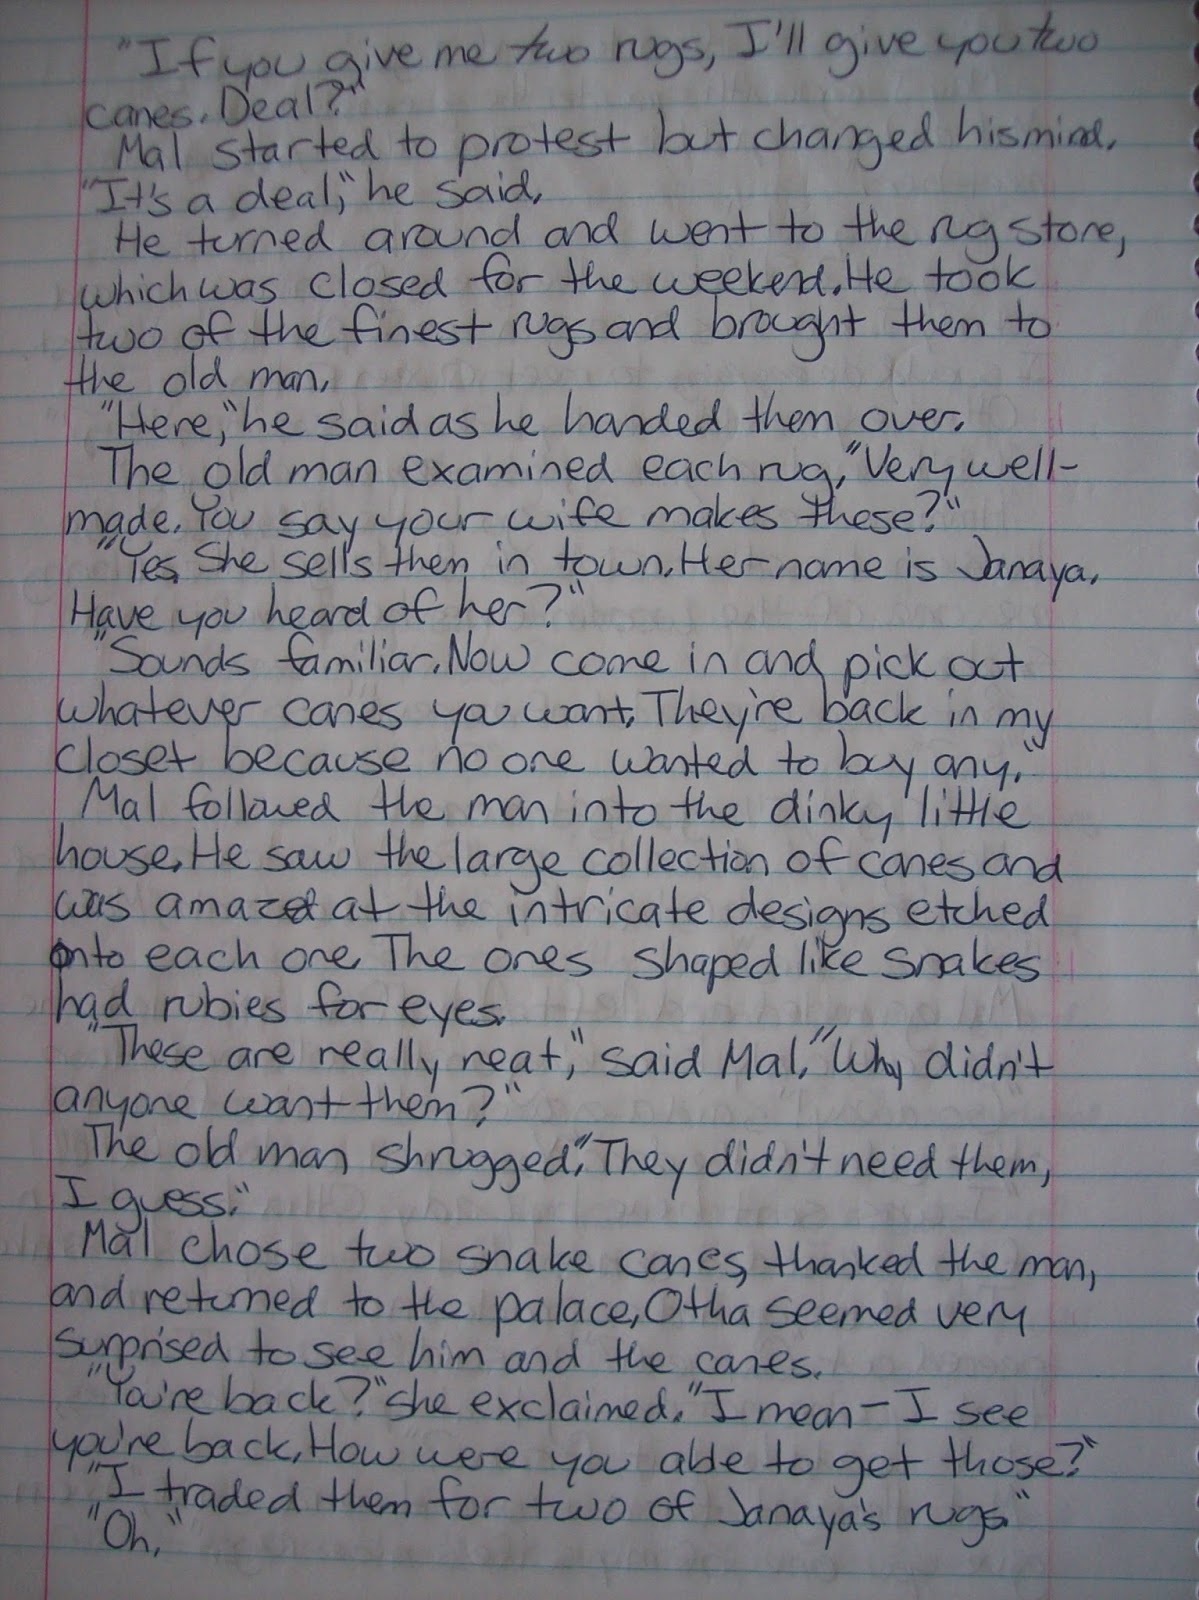 "If you give me two rugs, I'll give you two
canes. Deal?"
Mal started to protest but changed his mind.
"It's a deal," he said.
He turned around and went to the rug store,
which was closed for the weekend. He took
two of the finest rugs and brought them to
the old man.
"Here," he said as he handed them over.
The old man examined each rug. "Very well-
made. You say your wife makes these?"
"Yes. She sells them in town. Her name is Janaya.
Have you heard of her?"
"Sounds familiar. Now come in and pick out
whatever canes you want. They're back in my
closet because no one wanted to buy any."
Mal followed the man into the dinky little
house. He saw the large collection of canes and
was amazed at the intricate designs etched
onto each one. The ones shaped like snakes
had rubies for eyes.
"These are really neat," said Mal. "Why didn't
anyone want them?"
The old man shrugged. "They didn't need them,
I guess."
Mal chose two snake canes, thanked the man,
and returned to the palace. Otha seemed very
surprised to see him and the canes.
"You're back?" she exclaimed. "I mean – I see
you're back. How were you able to get those?"
"I traded them for two of Janaya's rugs."
"Oh."